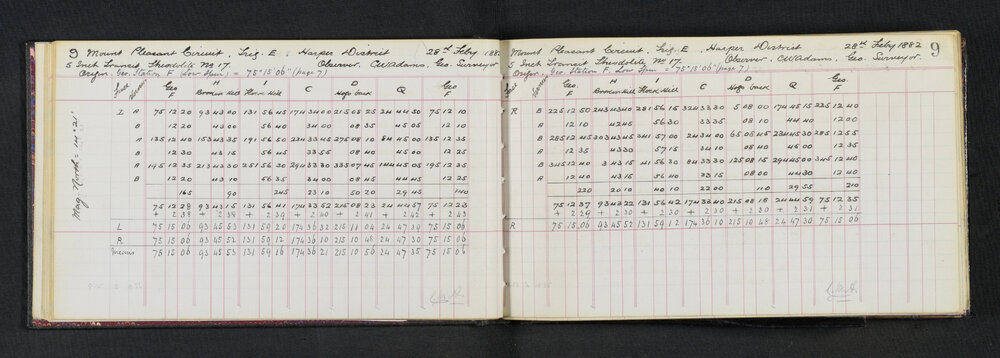 9 Mount Pleasant Circuit, Trig. E, Harper District 28th Feby 1882
5 Inch Transit Theodolite No 17. Observer. CWAdams, Geo. Surveyor
Origin. Geo. Station F (Low Spur) = 75° 15' 06" (page 7)
Geo F H I C D Q Geo F
L A 75 12 20 93 43 00 131 56 45 174 34 00 215 08 25 24 44 50 75 12 10
B 12 20 43 00 56 40 34 00 08 35 45 05 12 10
A 135 12 40 153 43 35 191 56 50 234 33 45 275 08 10 84 45 00 135 12 35
B 12 30 43 15 56 45 33 55 08 40 45 00 12 25
A 195 12 35 213 43 30 251 56 30 294 33 30 335 07 45 144 45 05 195 12 35
B 12 20 43 10 56 35 34 00 08 45 44 45 12 25
165 90 245 23 10 50 20 29 45 140
75 12 28 93 43 15 131 56 41 174 33 52 215 08 23 24 44 57 75 12 23
+ 2 38 + 2 38 + 2 39 + 2 40 + 2 41 + 2 42 + 2 43
L 75 15 06 93 45 53 131 59 20 174 36 32 215 11 04 24 47 39 75 15 06
R 75 15 06 93 45 52 131 59 12 174 36 10 215 10 48 24 47 30 75 15 06
Means 75 15 06 93 45 53 131 59 16 174 36 21 215 10 56 24 47 35 75 15 06
Mag North = 14° 21'
Mount Pleasant Circuit, Trig. E, Harper District 28th Feby 1882 9
5 Inch Transit Theodolite No 17. Observer. CWAdams, Geo. Surveyor
Origin. Geo. Station F (Low Spur) = 75° 15' 06" (page 7)
Geo F H I C D Q Geo F
R B 225 12 50 243 43 40 281 56 15 324 33 30 5 08 00 174 45 15 225 12 40
A 12 10 42 45 56 30 33 35 08 10 44 40 12 00
B 285 12 45 303 43 45 341 57 00 24 34 00 65 08 45 234 45 30 285 12 55
A 12 35 43 30 57 15 34 10 08 40 45 00 12 35
B 345 12 40 3 43 15 41 56 30 84 33 30 125 08 15 294 45 00 345 12 40
A 12 40 43 15 56 40 33 15 08 00 44 30 12 40
220 20 10 40 10 22 00 110 29 55 210
75 12 37 93 43 22 131 56 42 174 33 40 215 08 18 24 44 59 75 12 35
+ 2 29 + 2 30 + 2 30 + 2 30 + 2 30 + 2 31 + 2 31
R 75 15 06 93 45 52 131 59 12 174 36 10 215 10 48 24 47 30 75 15 06